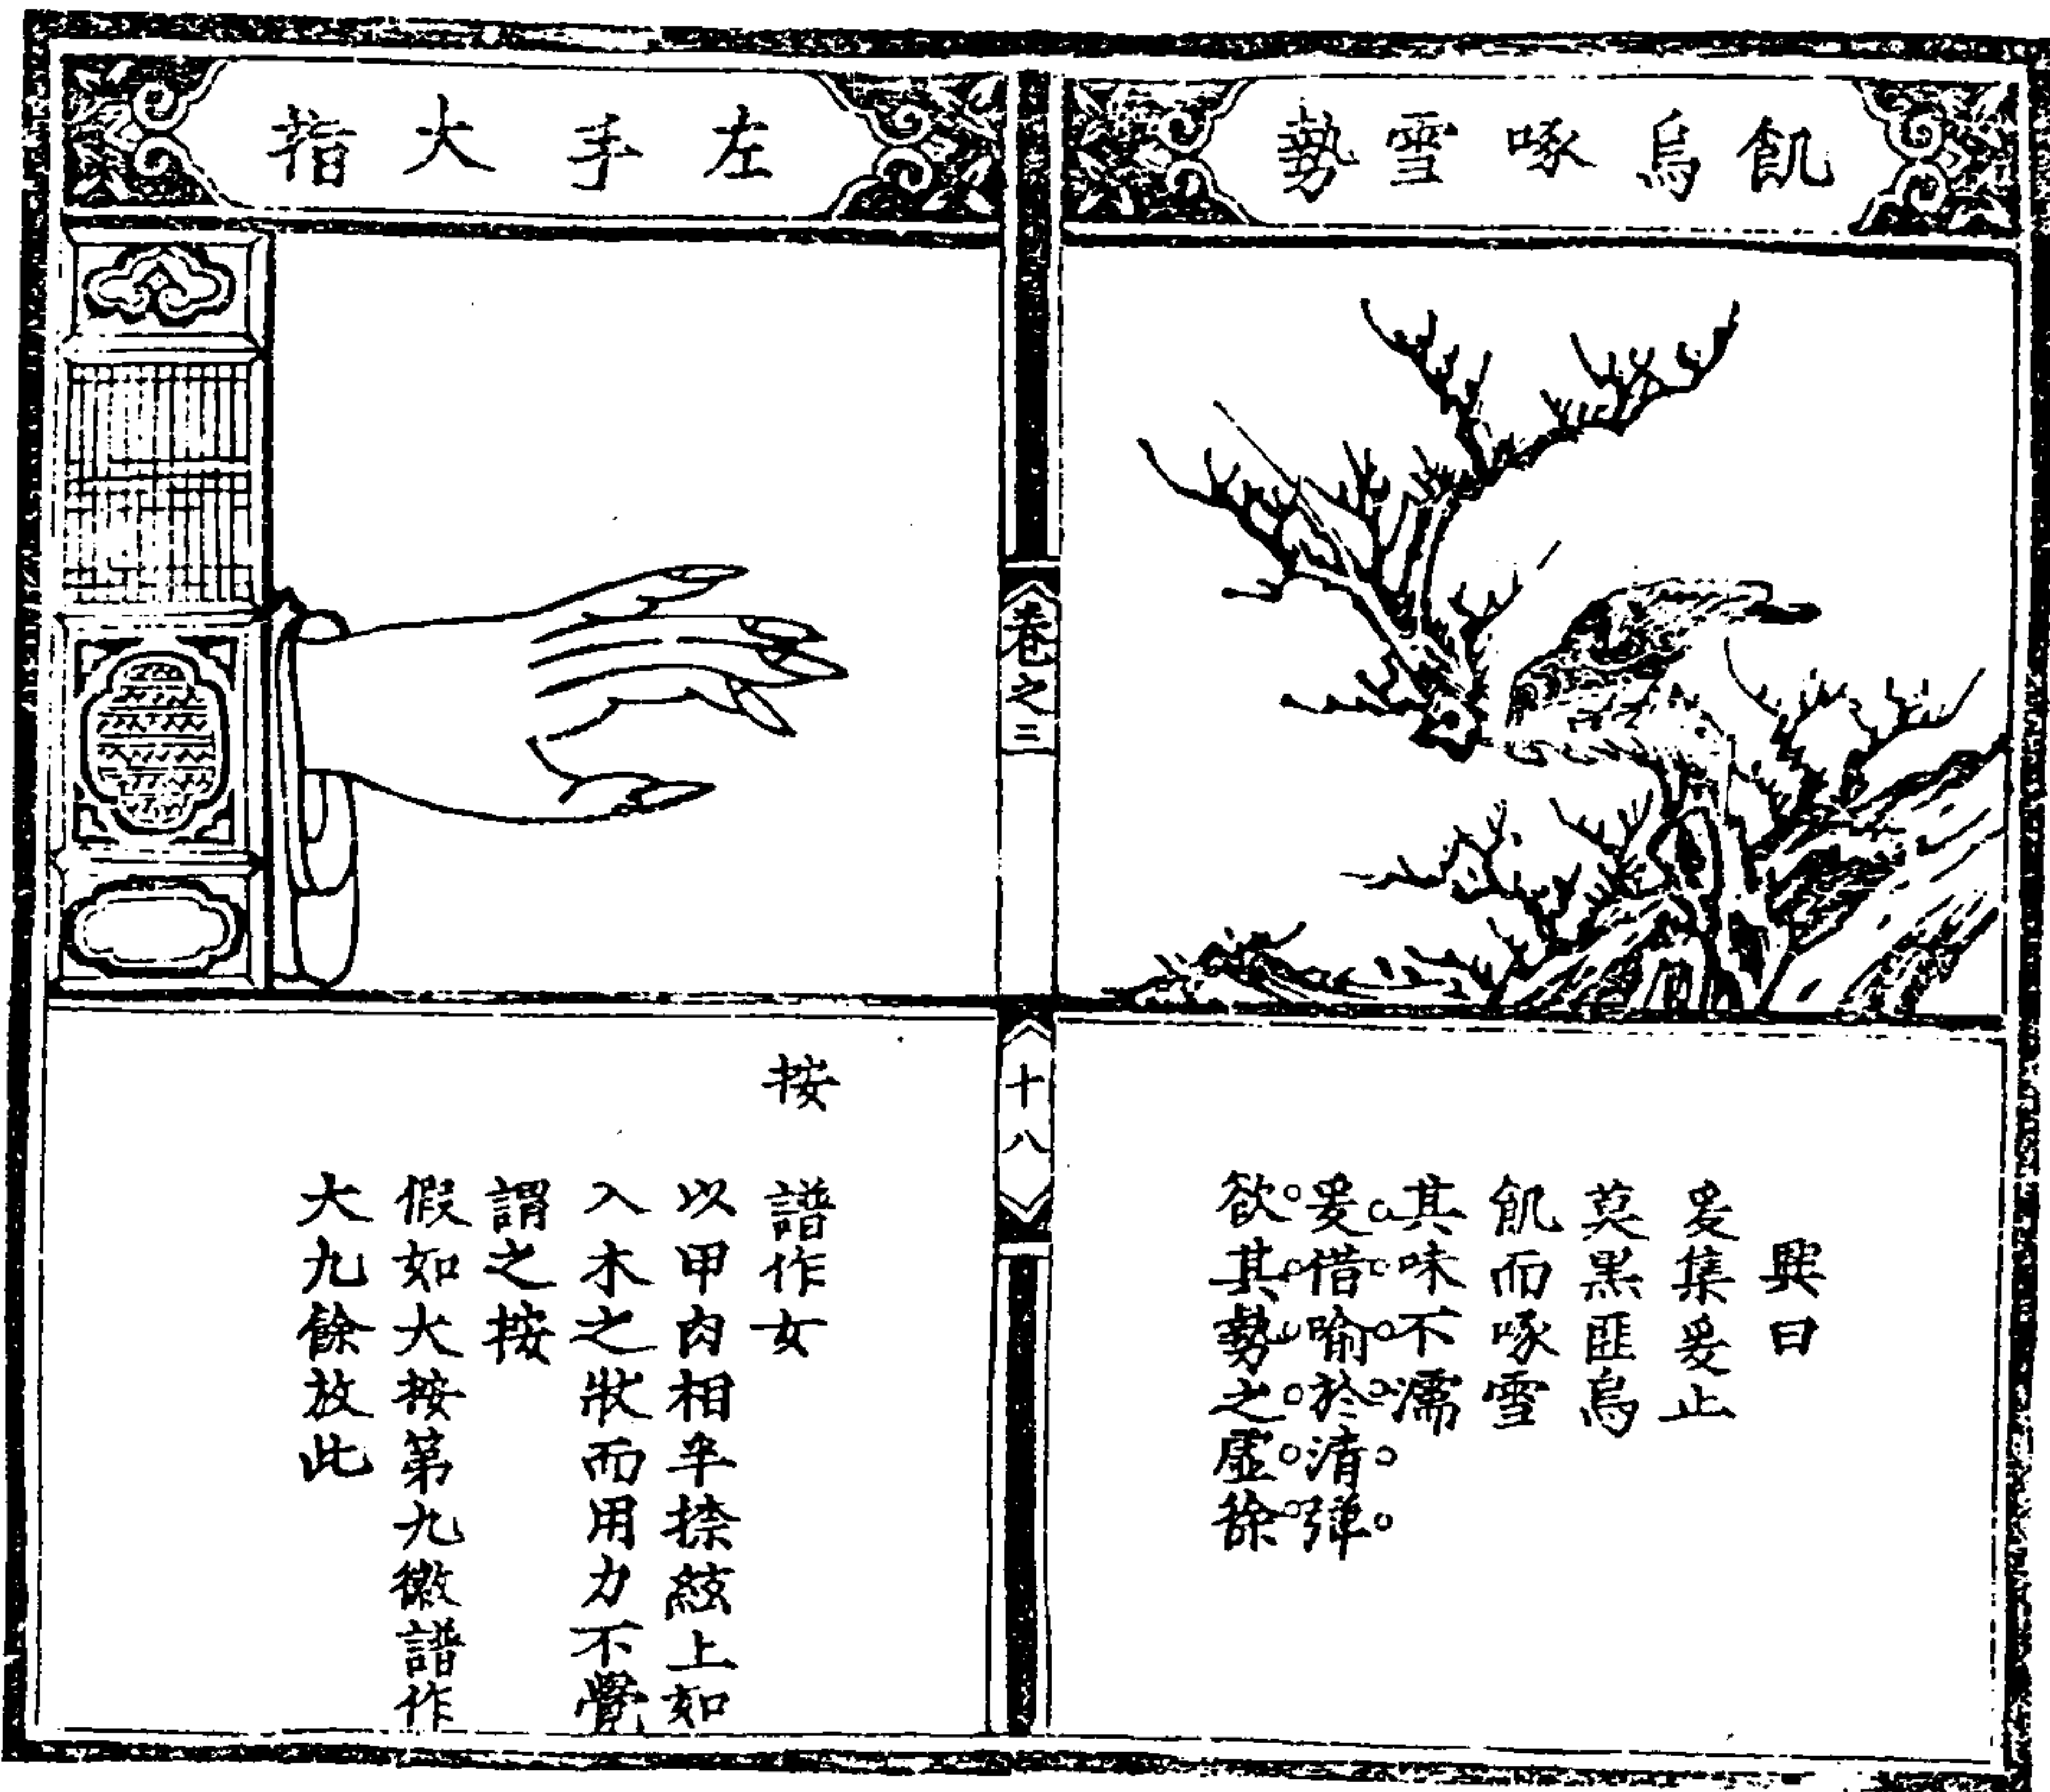 飢烏啄雪勢
興曰
爰集爰止
莫黑匪烏
飢而啄雪
其味不濡
爰借喻於清彈
欲其勢之虛徐
卷之三
十八
左手大指
按 譜作女
以甲肉相半捺絃上如
入木之狀而用力不覺
謂之按
假如大按第九徽譜作
大九餘放此